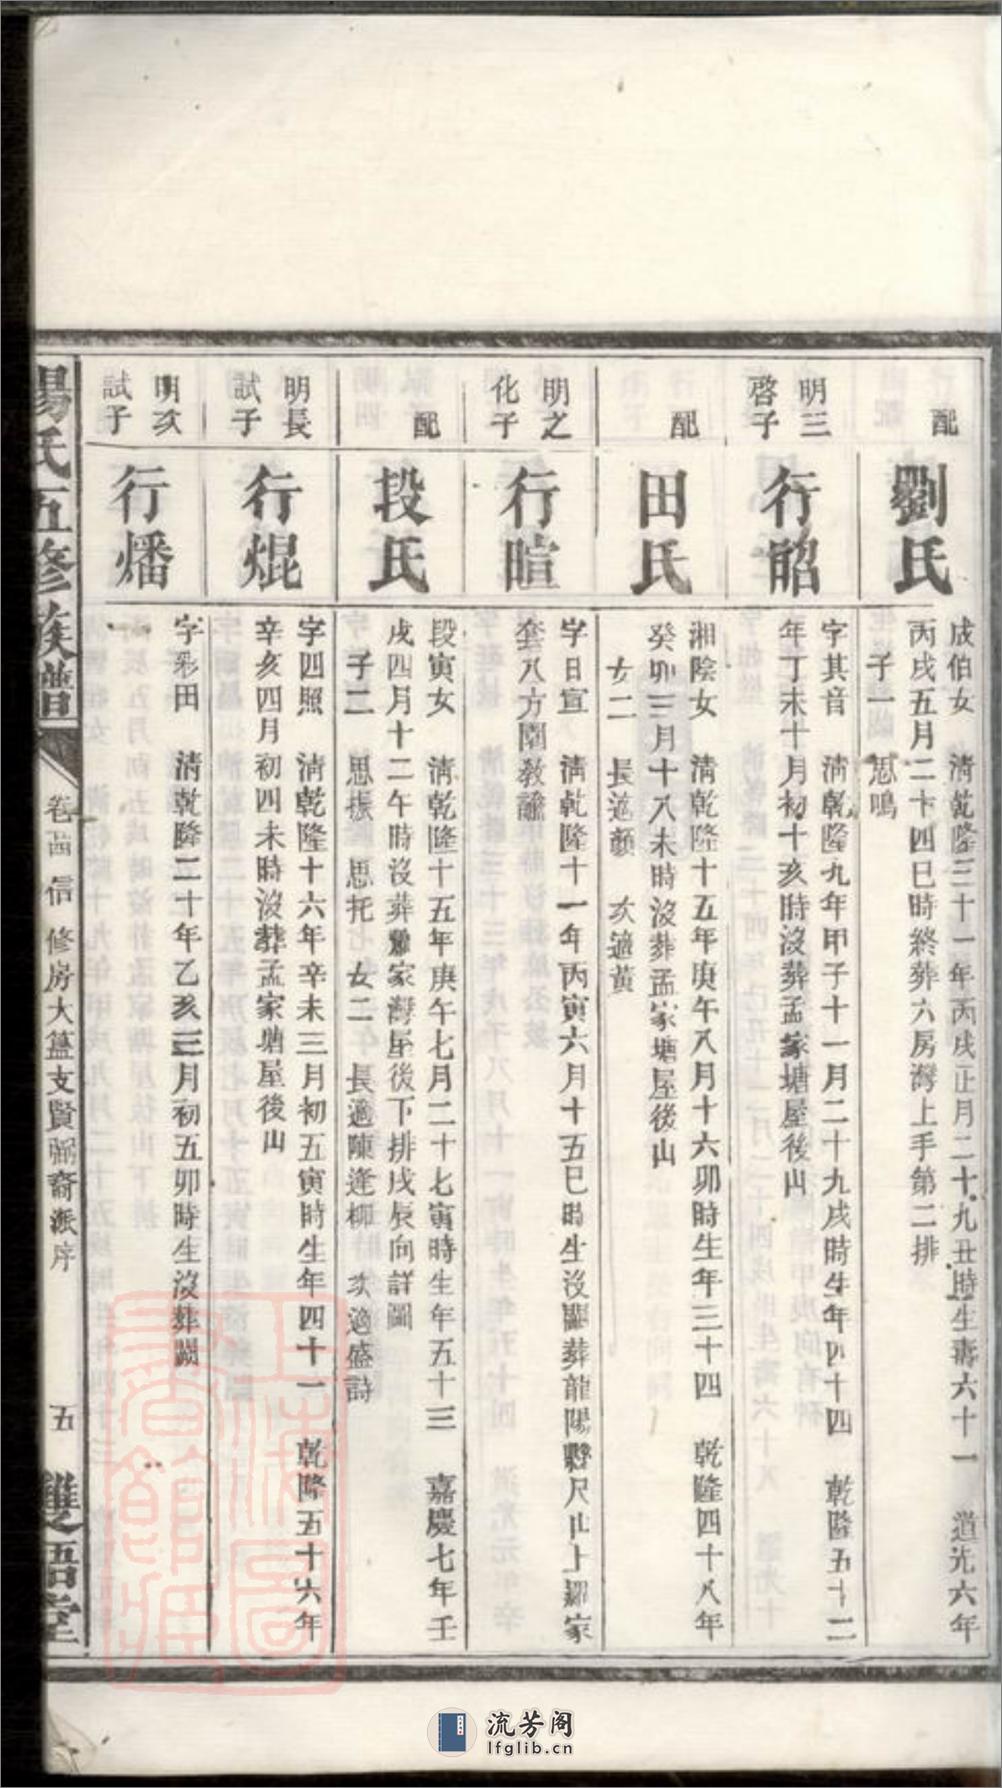 配
劉氏
成伯女　清乾隆三十一年丙戌正月二十九丑時生壽六十一　道光六年
丙戌五月二十四巳時終葬六房灣上手第二排
子一　思鳴
明三
啓子
行韶
字其音　清乾隆九年甲子十一月二十九戌時生年四十四　乾隆五十二
年丁未十月初十亥時沒葬孟家塘屋後山
配
田氏
湘陰女　清乾隆十五年庚午八月十六卯時生年三十四　乾隆四十八年
癸卯三月十八未時沒葬孟家塘屋後山
女二　長適顏　次適黃
明之
化子
行暄
字日宣　清乾隆十一年丙寅六月十五巳時生沒闕葬龍陽縣尺山上鄒家
套八方圍敎諭
配
段氏
段寅女　清乾隆十五年庚午七月二十七寅時生年五十三　嘉慶七年壬
戌四月十二午時沒葬家灣屋後下排戌辰向詳圖
子二　思振　思托　女二　長適陳逢柳　次適盛詩
明長
試子
行焜
字四照　清乾隆十六年辛未三月初五寅時生年四十一　乾隆五十六年
辛亥四月初四未時沒葬孟家塘屋後山
明次
試子
行燔
字彩田　清乾隆二十年乙亥三月初五卯時生沒葬闕
楊氏五修族譜
卷 信　修房大簋支賢弼裔派序
五
雙梧堂
上海圖書館藏
流芳阁
lfglib.cn